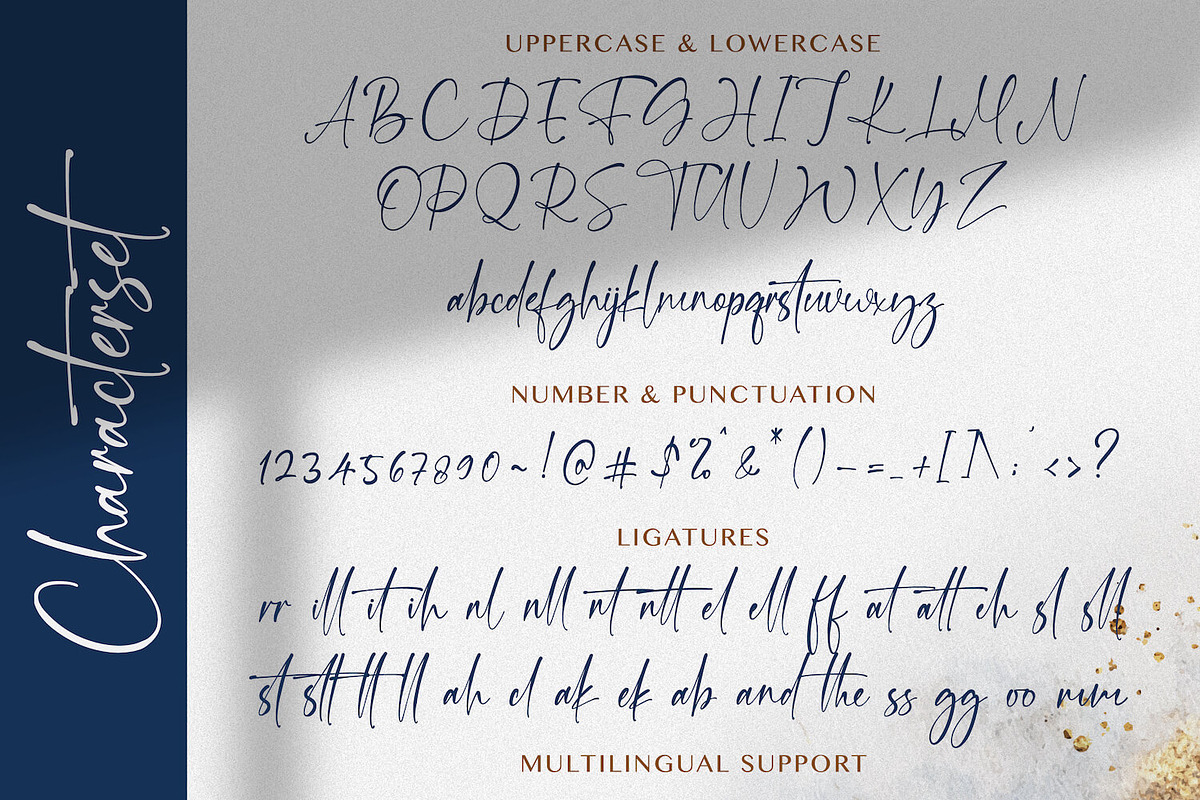 Characterset
UPPERCASE & LOWERCASE
A B C D E F G H I J K L M N
O P Q R S T U V W X Y Z
abcdefghijklmnopqrstuvwxyz
NUMBER & PUNCTUATION
1 2 3 4 5 6 7 8 9 0 ~ ! @ # $ % ^ & * ( ) - = _ + [ ] \ : ' < > ?
LIGATURES
rr ill it ih nl nll nt ntt el ell ff at att eh sl sll
st stt tt ll ah cl ak ek ab and the ss gg oo
MULTILINGUAL SUPPORT